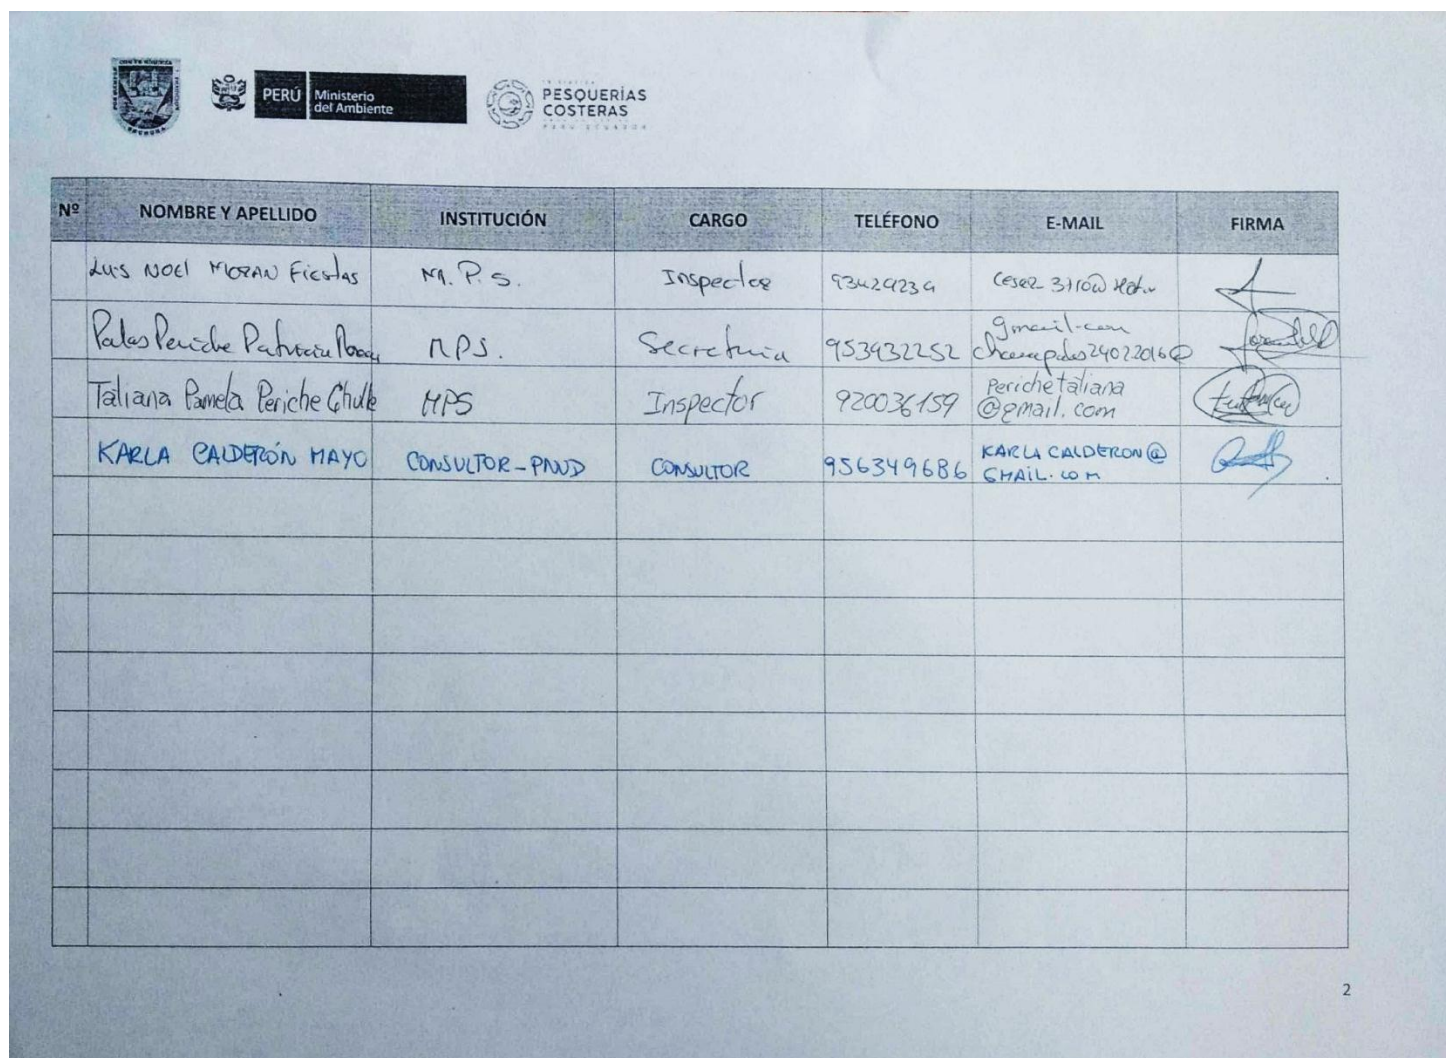 PERÚ Ministerio del Ambiente
PESQUERÍAS
COSTERAS
PERÚ ECUADOR
Nº NOMBRE Y APELLIDO INSTITUCIÓN CARGO TELÉFONO E-MAIL FIRMA
Luis NOEl MORAN Fiestas M.P.S. Inspector 93429239
Periche MPS. Secretaria 953932252 gmail-com
Taliana Pamela Periche Chulle MPS Inspector 920036159 Perichetaliana
@gmail.com
KARLA CALDERÓN MAYO CONSULTOR-PNUD CONSULTOR 956349686 KARLA CALDERON@
GMAIL.COM
2